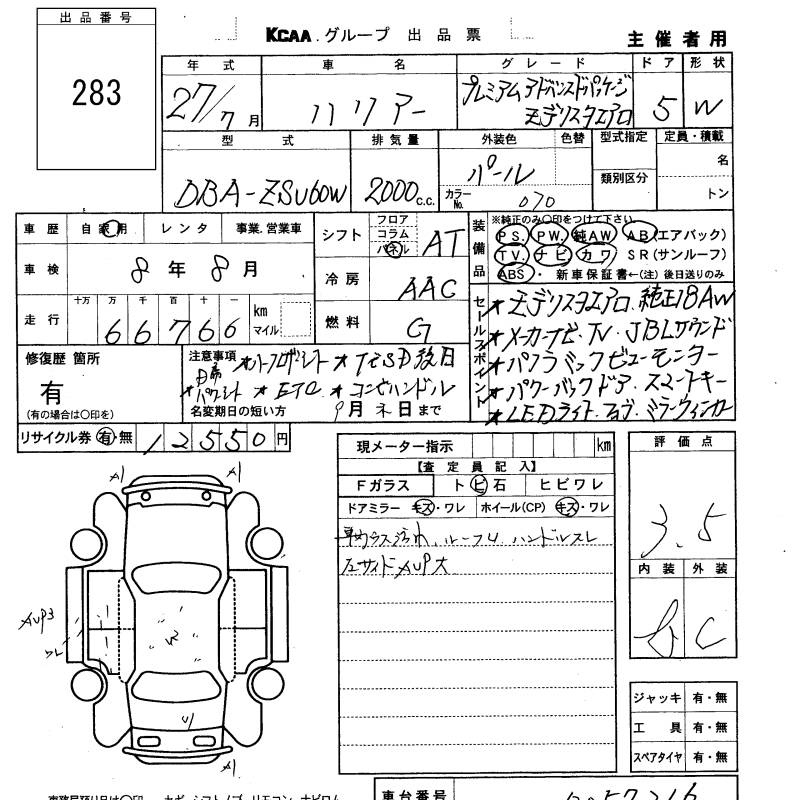 出品番号
283
KCAA グループ 出品票
主催者用
年式 車名 グレード ドア 形状
27/7月 ハリアー プレミアム アドバンスドパッケージ
モデリスタエアロ 5 W
型式 排気量 外装色 色替 型式指定 定員・積載
DBA-ZSU60W 2000c.c. パール 名
カラーNo. 070 類別区分 トン
車歴 自家用 レンタ 事業.営業車
車検 8年8月
走行 十万 万 千 百 十 一
66766 km マイル
シフト フロア コラム パネル AT
冷房 AAC
燃料 G
装備品 ※純正のみ〇印をつけて下さい
PS. PW. 純AW AB(エアバック)
TV. ナビ カワ SR(サンルーフ)
ABS・ 新車保証書←(注)後日送りのみ
セールスポイント
★モデリスタエアロ.純正18AW
★メーカーナビ・TV・JBLサウンド
★パノラミックビューモニター
★パワーバックドア.スマートキー
★LEDライト.フォグ.ミラーウィンカー
修復歴 箇所
有
(有の場合は〇印を)
注意事項
D席
パワシート ★ETC ★コンビハンドル
名変期日の短い方 9月 日まで
リサイクル券 有・無 12550円
現メーター指示 km
【査定員記入】
Fガラス トビ石 ヒビワレ
ドアミラー キズ・ワレ ホイール(CP) キズ・ワレ
ハンドルスレ
左サイド AUP大
評価点
3.5
内装 外装
C
ジャッキ 有・無
工具 有・無
スペアタイヤ 有・無
A1 A1
AUP3
A1
車台番号